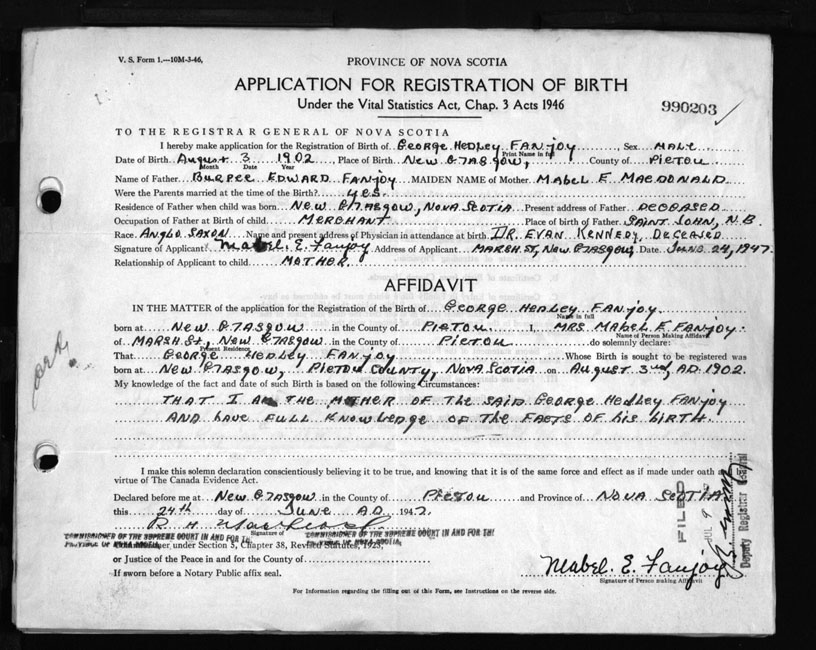 V. S. Form 1.—10M-3-46.
PROVINCE OF NOVA SCOTIA
APPLICATION FOR REGISTRATION OF BIRTH
Under the Vital Statistics Act, Chap. 3 Acts 1946
990203
TO THE REGISTRAR GENERAL OF NOVA SCOTIA
I hereby make application for the Registration of Birth of George Hedley Fanjoy, Sex Male
Print Name in full
Date of Birth August 3 1902, Place of Birth New Glasgow, County of Pictou
Month Date Year
Name of Father Burpee Edward Fanjoy MAIDEN NAME of Mother Mabel E MacDonald
Were the Parents married at the time of the Birth? yes.
Residence of Father when child was born New Glasgow, Nova Scotia Present address of Father Deceased
Occupation of Father at Birth of child Merchant Place of birth of Father Saint John, N.B.
Race Anglo Saxon Name and present address of Physician in attendance at birth Dr. Evan Kennedy, Deceased
Signature of Applicant Mabel. E. Fanjoy Address of Applicant Marsh St, New Glasgow, Date June 24, 1947.
Relationship of Applicant to child Mother.
AFFIDAVIT
IN THE MATTER of the application for the Registration of the Birth of George Hedley Fanjoy.
Name in full
born at New Glasgow in the County of Pictou I, Mrs. Mabel E. Fanjoy.
Name of Person Making Affidavit
of Marsh St, New Glasgow in the County of Pictou do solemnly declare:
Present Residence
That George Hedley Fanjoy Whose Birth is sought to be registered was
born at New Glasgow, Pictou County, Nova Scotia on August 3rd, A.D. 1902.
My knowledge of the fact and date of such Birth is based on the following Circumstances:
That I am the mother of the said George Hedley Fanjoy
and have full knowledge of the facts of his birth.
I make this solemn declaration conscientiously believing it to be true, and knowing that it is of the same force and effect as if made under oath
virtue of The Canada Evidence Act.
Declared before me at New Glasgow in the County of Pictou and Province of Nova Scotia
this 24th day of June A.D. 1947.
R. H.
Signature of
COMMISSIONER OF THE SUPREME COURT IN AND FOR THE COMMISSIONER OF THE SUPREME COURT IN AND FOR THE
PROVINCE OF NOVA SCOTIA, under Section 5, Chapter 38, Revised Statutes, 1923, PROVINCE OF NOVA SCOTIA,
or Justice of the Peace in and for the County of
If sworn before a Notary Public affix seal.
Mabel. E. Fanjoy
Signature of Person making Affidavit
FILED
JUL 9
Deputy Registrar General
For Information regarding the filling out of this Form, see Instructions on the reverse side.